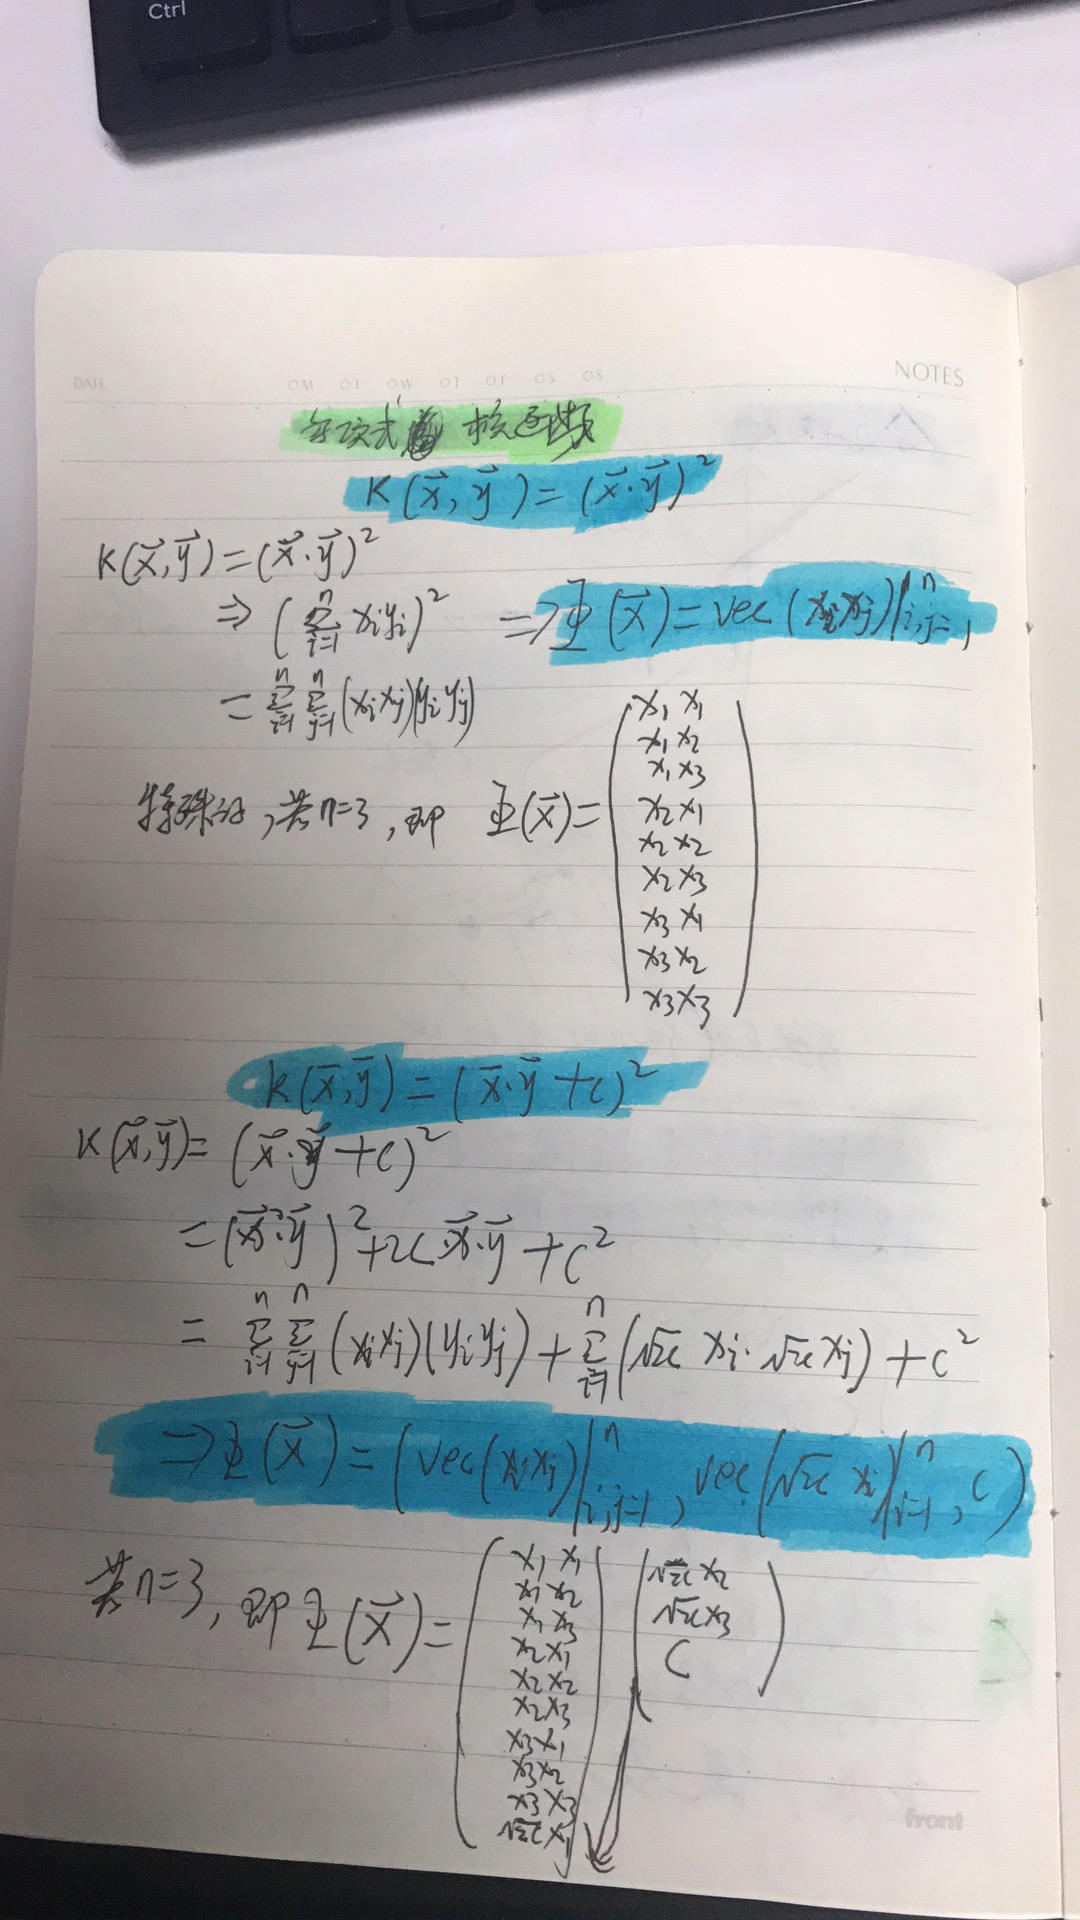 Ctrl
NOTES
DATE
多项式 核函数
K(x⃗, y⃗) = (x⃗·y⃗)²
K(x⃗, y⃗) = (x⃗·y⃗)²
⇒ (∑ᵢ₌₁ⁿ xᵢyᵢ)² ⇒ Φ(x⃗) = vec(xᵢxⱼ)|ⁿᵢ,ⱼ₌₁
= ∑ᵢ₌₁ⁿ ∑ⱼ₌₁ⁿ (xᵢxⱼ)(yᵢyⱼ)
特殊的, 若n=3, 即 Φ(x⃗) =
x₁x₁
x₁x₂
x₁x₃
x₂x₁
x₂x₂
x₂x₃
x₃x₁
x₃x₂
x₃x₃
K(x⃗, y⃗) = (x⃗·y⃗ + c)²
K(x⃗, y⃗) = (x⃗·y⃗ + c)²
= (x⃗·y⃗)² + 2c x⃗·y⃗ + c²
= ∑ᵢ₌₁ⁿ ∑ⱼ₌₁ⁿ (xᵢxⱼ)(yᵢyⱼ) + ∑ᵢ₌₁ⁿ (√2c xᵢ·√2c xⱼ) + c²
⇒ Φ(x⃗) = (vec(xᵢxⱼ)|ⁿᵢ,ⱼ₌₁, vec(√2c xᵢ)|ⁿᵢ₌₁, c)
若n=3, 即Φ(x⃗) =
x₁x₁
x₁x₂
x₁x₃
x₂x₁
x₂x₂
x₂x₃
x₃x₁
x₃x₂
x₃x₃
√2c x₁
√2c x₂
√2c x₃
c
front